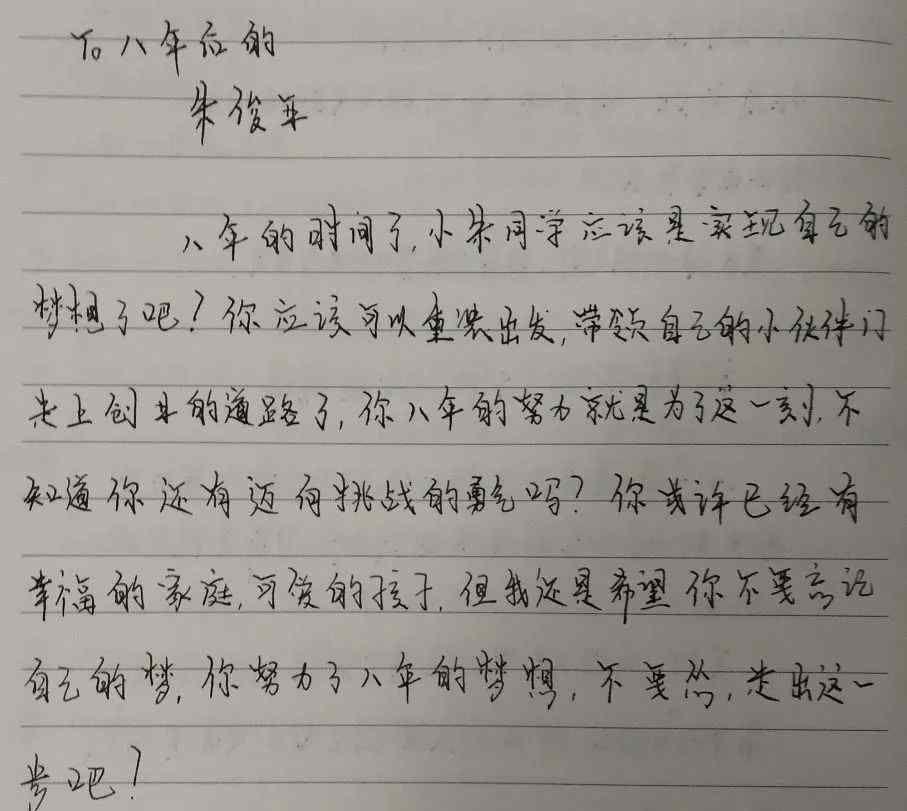 To 八年后的
朱俊平
八年的时间了,小朱同学应该是实现自己的
梦想了吧?你应该可以重装出发,带领自己的小伙伴们
走上创业的道路了,你八年的努力就是为了这一刻.不
知道你还有迈向挑战的勇气吗?你或许已经有
幸福的家庭,可爱的孩子,但我还是希望你不要忘记
自己的梦,你努力了八年的梦想,不要怂,走出这一
步吧!